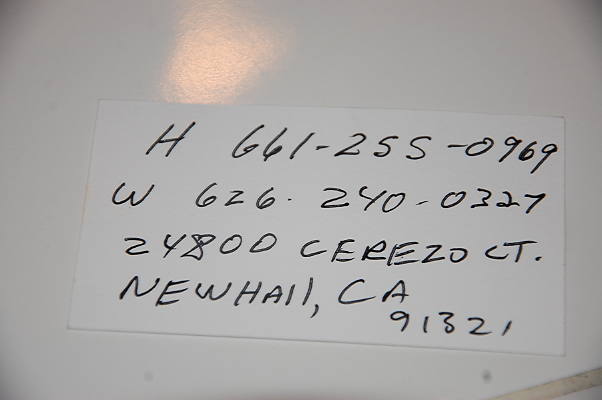 H 661-255-0969
W 626. 240-0327
24800 CEREZO CT.
NEWHAll, CA
91321